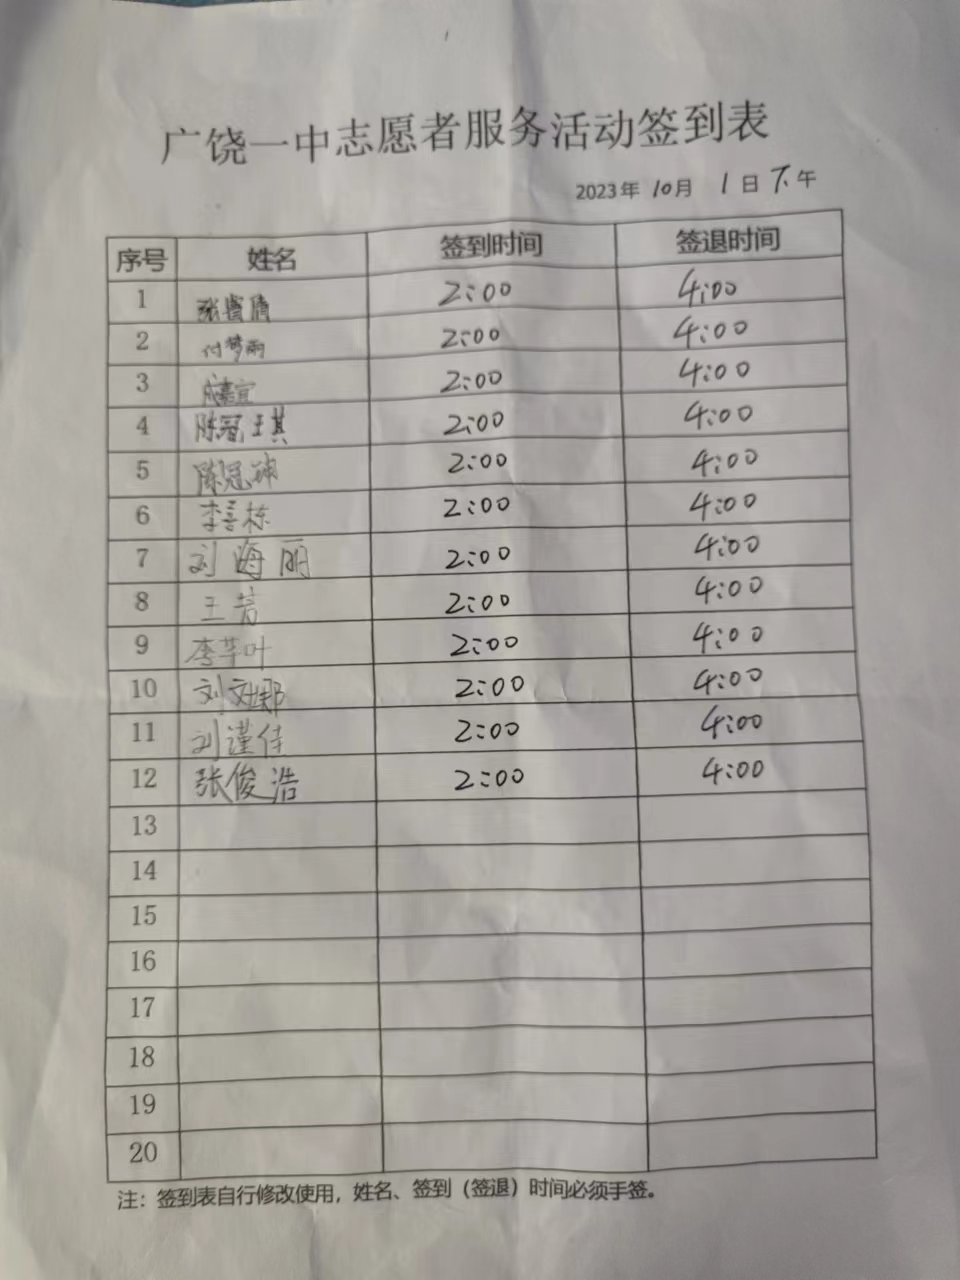 广饶一中志愿者服务活动签到表
2023年 10月 1日 下午
序号 姓名 签到时间 签退时间
1 张 倩 2:00 4:00
2 付梦雨 2:00 4:00
3 成嘉宜 2:00 4:00
4 陈冠琪 2:00 4:00
5 陈冠 2:00 4:00
6 李善栋 2:00 4:00
7 刘海丽 2:00 4:00
8 王芳 2:00 4:00
9 李 叶 2:00 4:00
10 刘文娜 2:00 4:00
11 刘谨佳 2:00 4:00
12 张俊浩 2:00 4:00
13
14
15
16
17
18
19
20
注：签到表自行修改使用，姓名、签到（签退）时间必须手签。